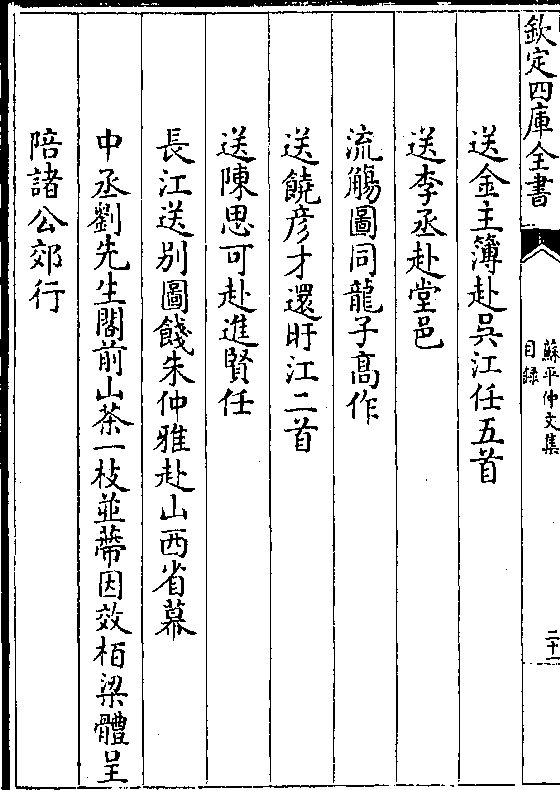 欽定四庫全書
蘇平仲文集
目録
二十一
送金主簿赴吳江任五首
送李丞赴堂邑
流觴圖同龍子高作
送饒彦才還盱江二首
送陳思可赴進賢任
長江送別圖餞朱仲雅赴山西省幕
中丞劉先生閣前山茶一枝並蔕因效栢梁體呈
陪諸公郊行